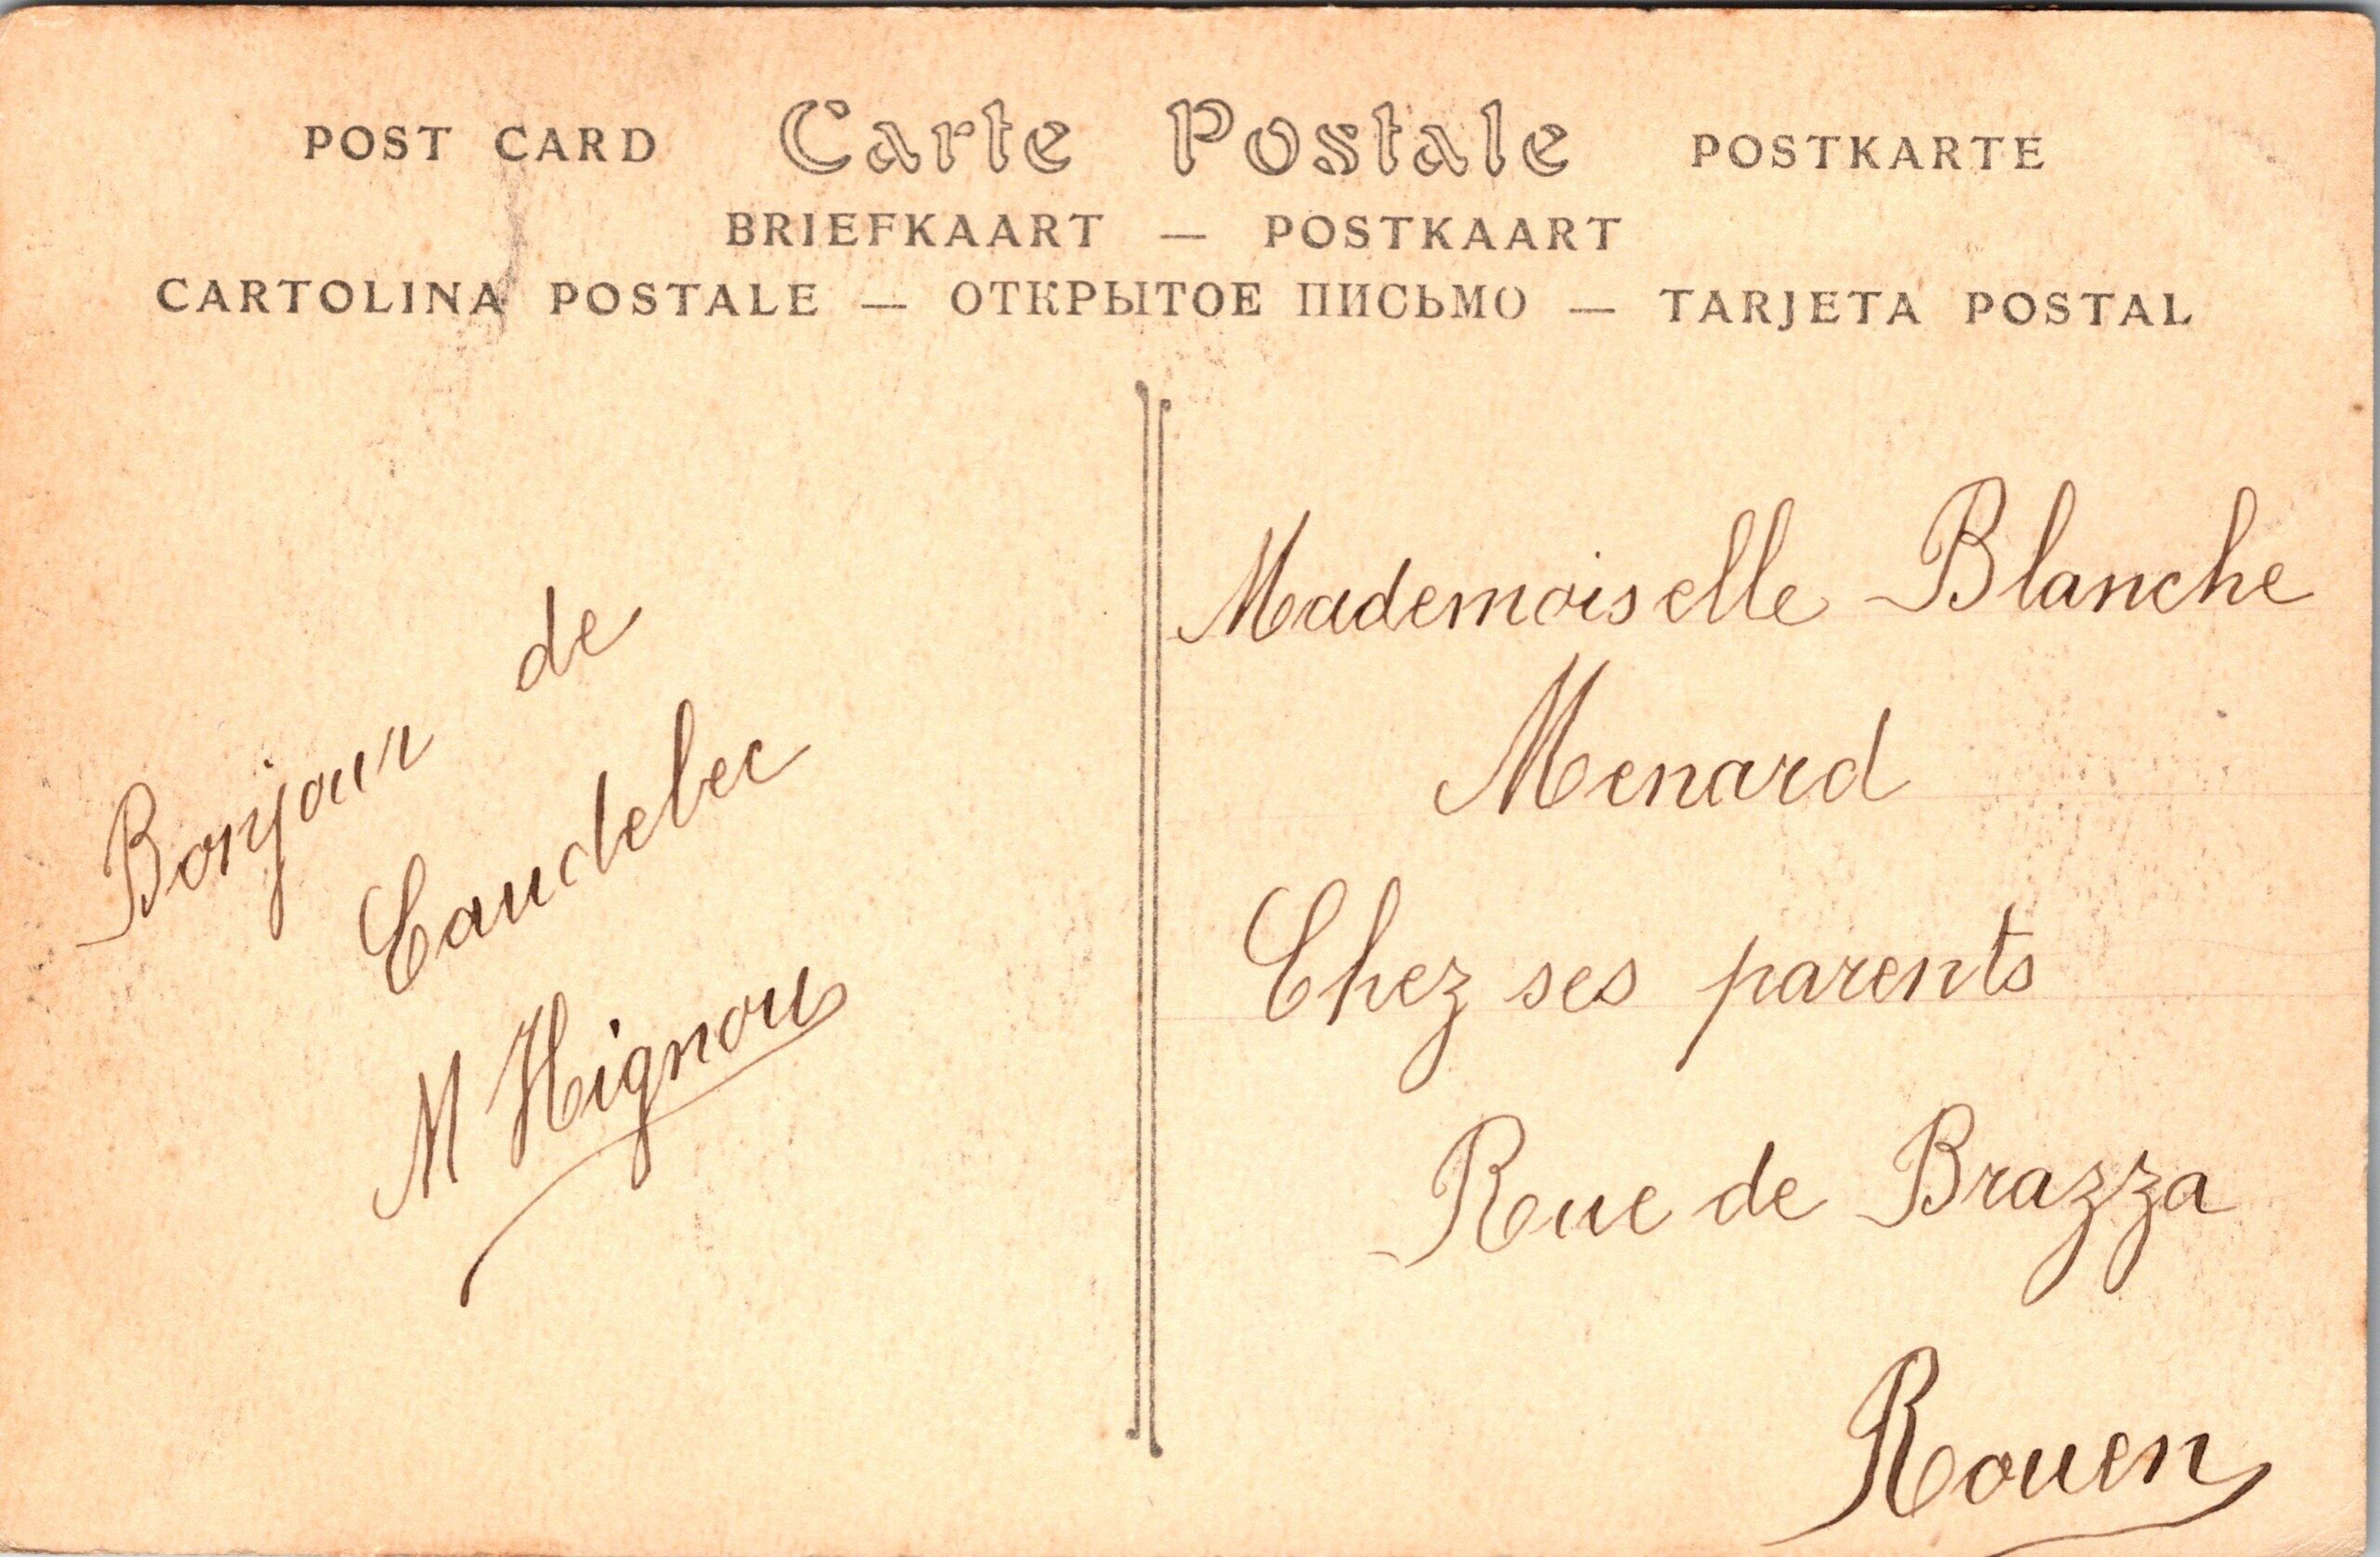 POST CARD Carte Postale POSTKARTE
BRIEFKAART — POSTKAART
CARTOLINA POSTALE — ОТКРЫТОЕ ПИСЬМО — TARJETA POSTAL
Bonjour de
Caudebec
M Hignou
Mademoiselle Blanche
Menard
Chez ses parents
Rue de Brazza
Rouen